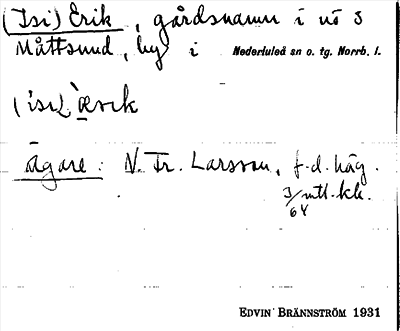 (Isi) Erik, gårdsnamn i nö 3
Måttsund, by i Nederluleå sn o. tg. Norrb. l.
Ägare: N. Fr. Larsson, f.d. häg.
3/64 mtl. kk.
EDVIN BRÄNNSTRÖM 1931